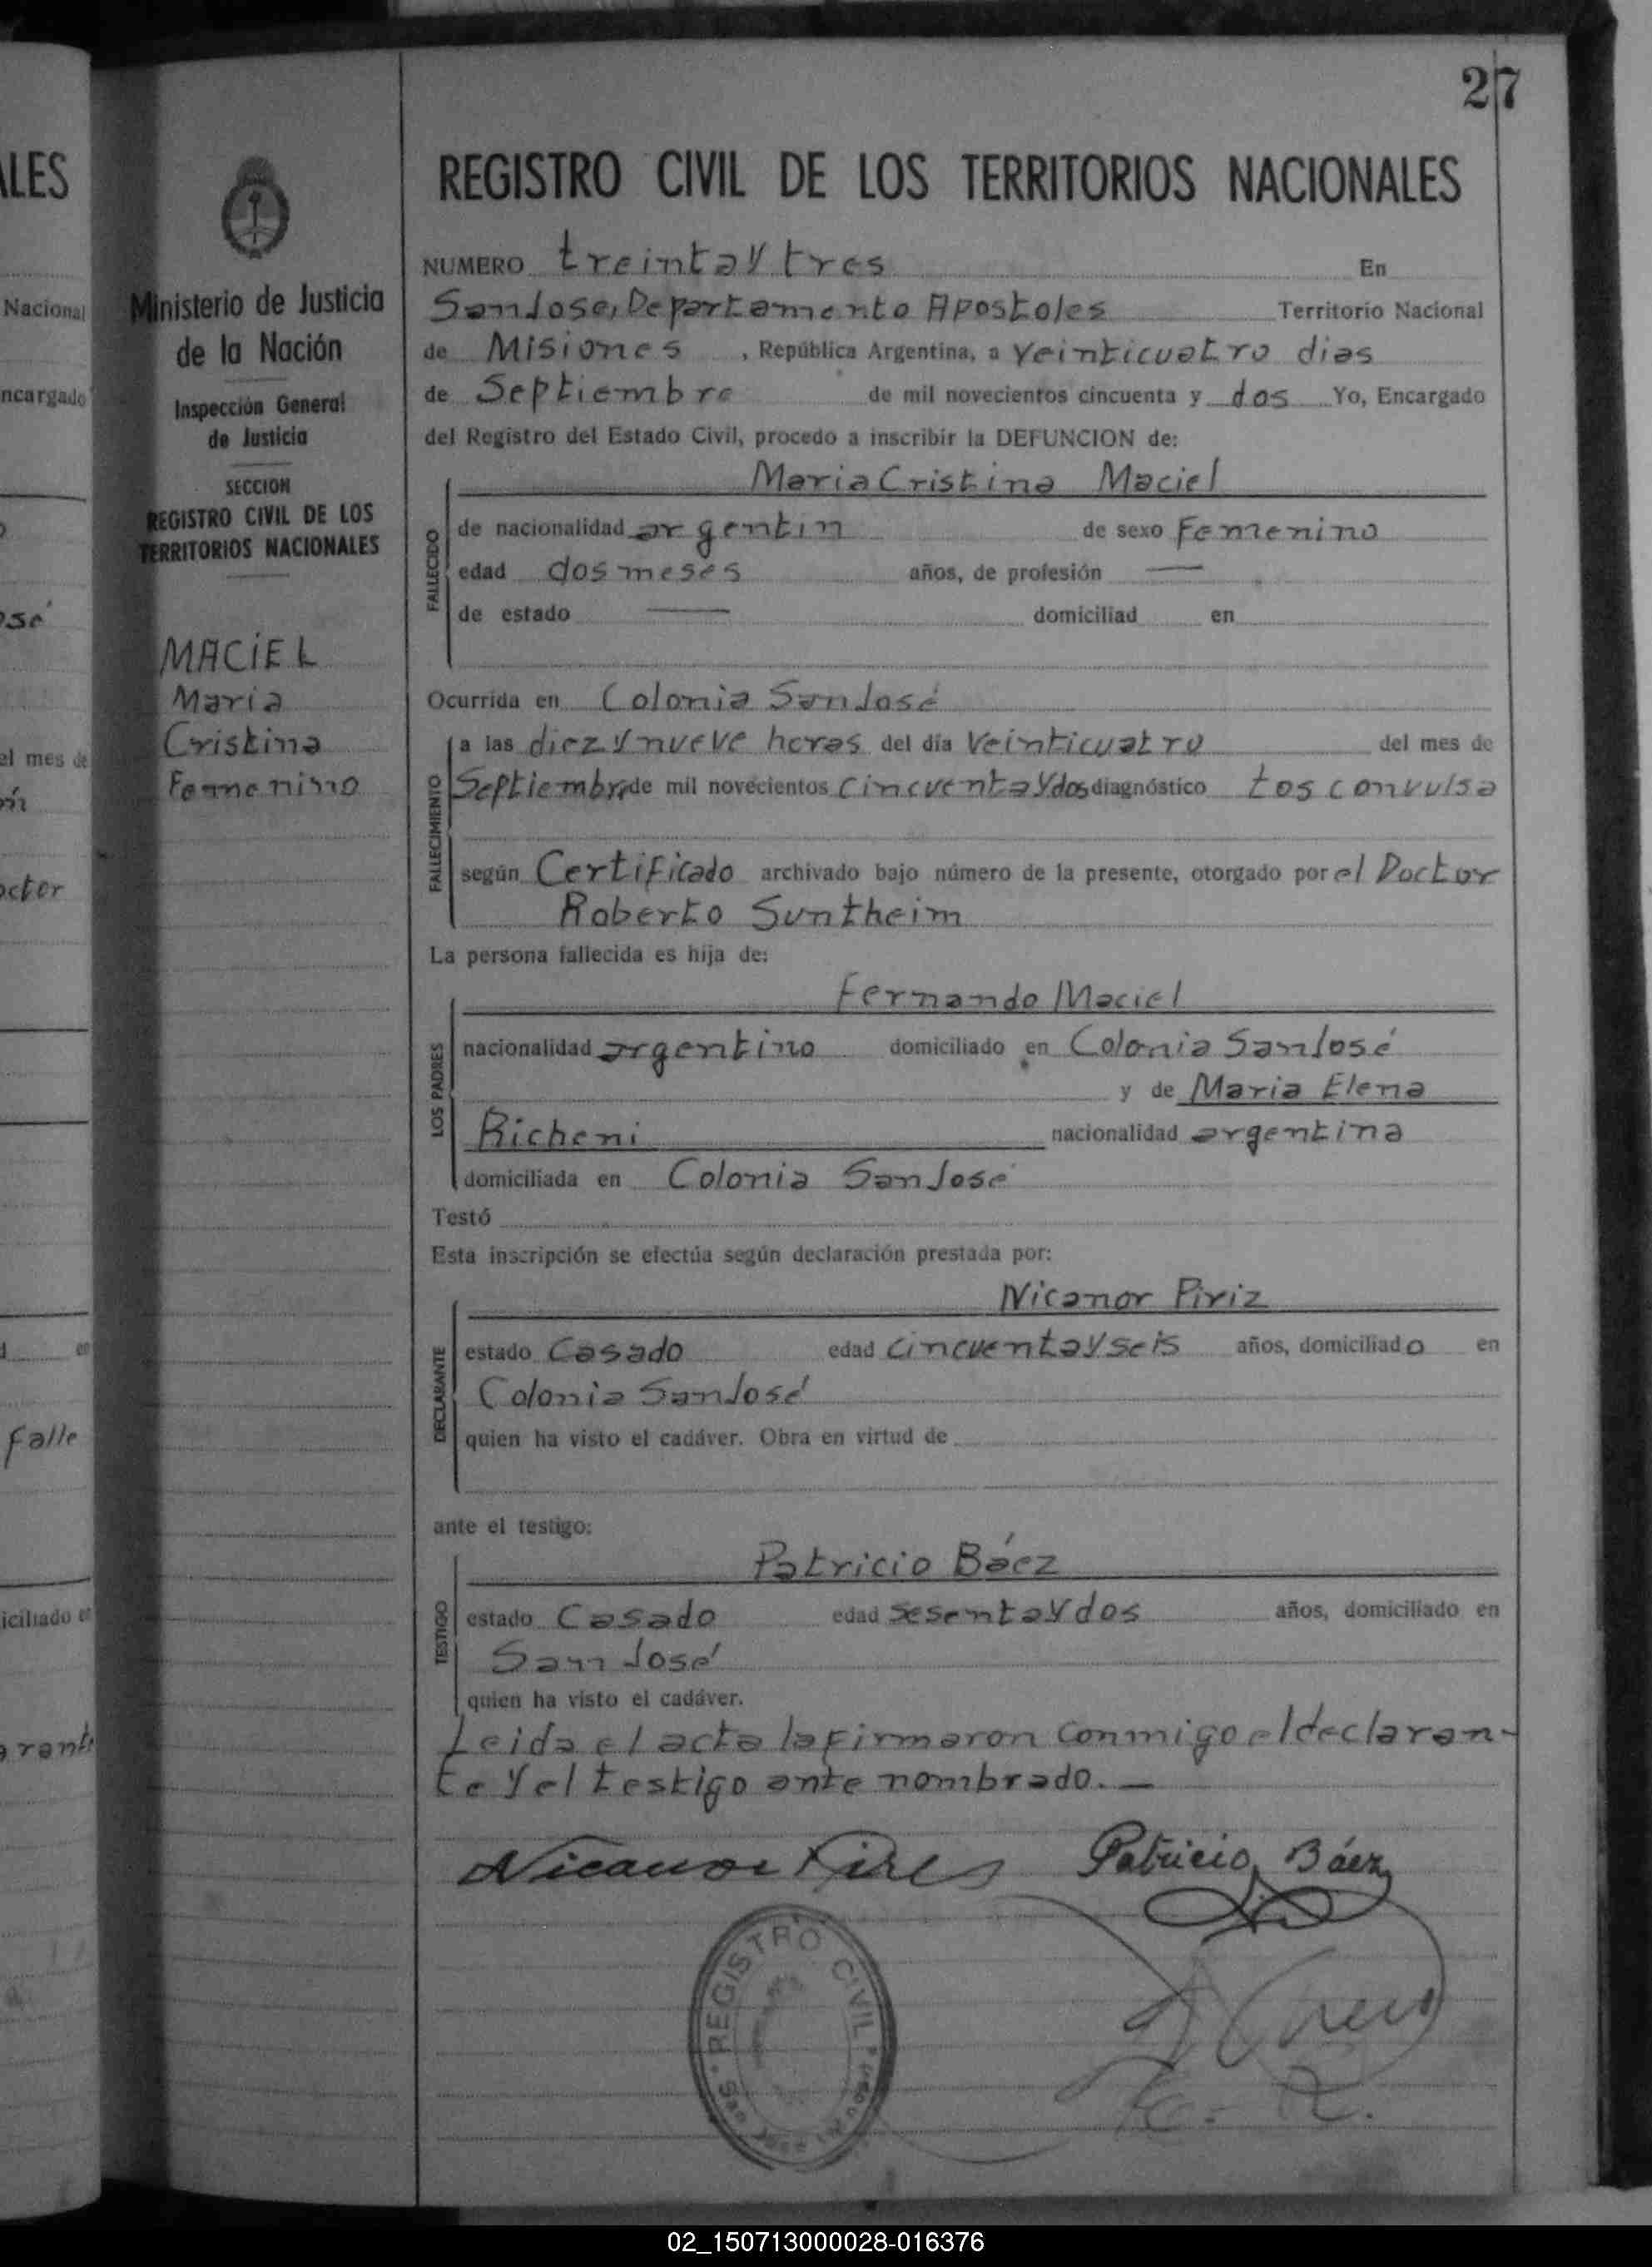 27
ALES
Nacional
ncargado
osé
el mes de
octor
en
falle
iciliado en
Ministerio de Justicia
de la Nación
Inspección General
de Justicia
SECCION
REGISTRO CIVIL DE LOS
TERRITORIOS NACIONALES
MACIEL
Maria
Cristina
Femenino
REGISTRO CIVIL DE LOS TERRITORIOS NACIONALES
NUMERO treinta y tres En
San Jose, Departamento Apostoles Territorio Nacional
de Misiones , República Argentina, a veinticuatro dias
de Septiembre de mil novecientos cincuenta y dos Yo, Encargado
del Registro del Estado Civil, procedo a inscribir la DEFUNCION de:
FALLECIDO
Maria Cristina Maciel
de nacionalidad argentin de sexo Femenino
edad dos meses años, de profesión —
de estado — domiciliad en
Ocurrida en Colonia San José
FALLECIMIENTO
a las diez y nueve horas del día veinticuatro del mes de
Septiembre de mil novecientos cincuenta y dos diagnóstico tos convulsa
según Certificado archivado bajo número de la presente, otorgado por el Doctor
Roberto Suntheim
La persona fallecida es hija de:
LOS PADRES
Fernando Maciel
nacionalidad argentino domiciliado en Colonia San José
y de Maria Elena
Richeni nacionalidad argentina
domiciliada en Colonia San José
Testó
Esta inscripción se efectúa según declaración prestada por:
DECLARANTE
Nicanor Piriz
estado Casado edad cincuenta y seis años, domiciliado en
Colonia San José
quien ha visto el cadáver. Obra en virtud de
ante el testigo:
TESTIGO
Patricio Báez
estado Casado edad sesenta y dos años, domiciliado en
San José
quien ha visto el cadáver.
Leida el acta la firmaron conmigo el declaran-
te y el testigo ante nombrado. —
Nicanor Pires Patricio Báez
REGISTRO CIVIL
02_150713000028-016376